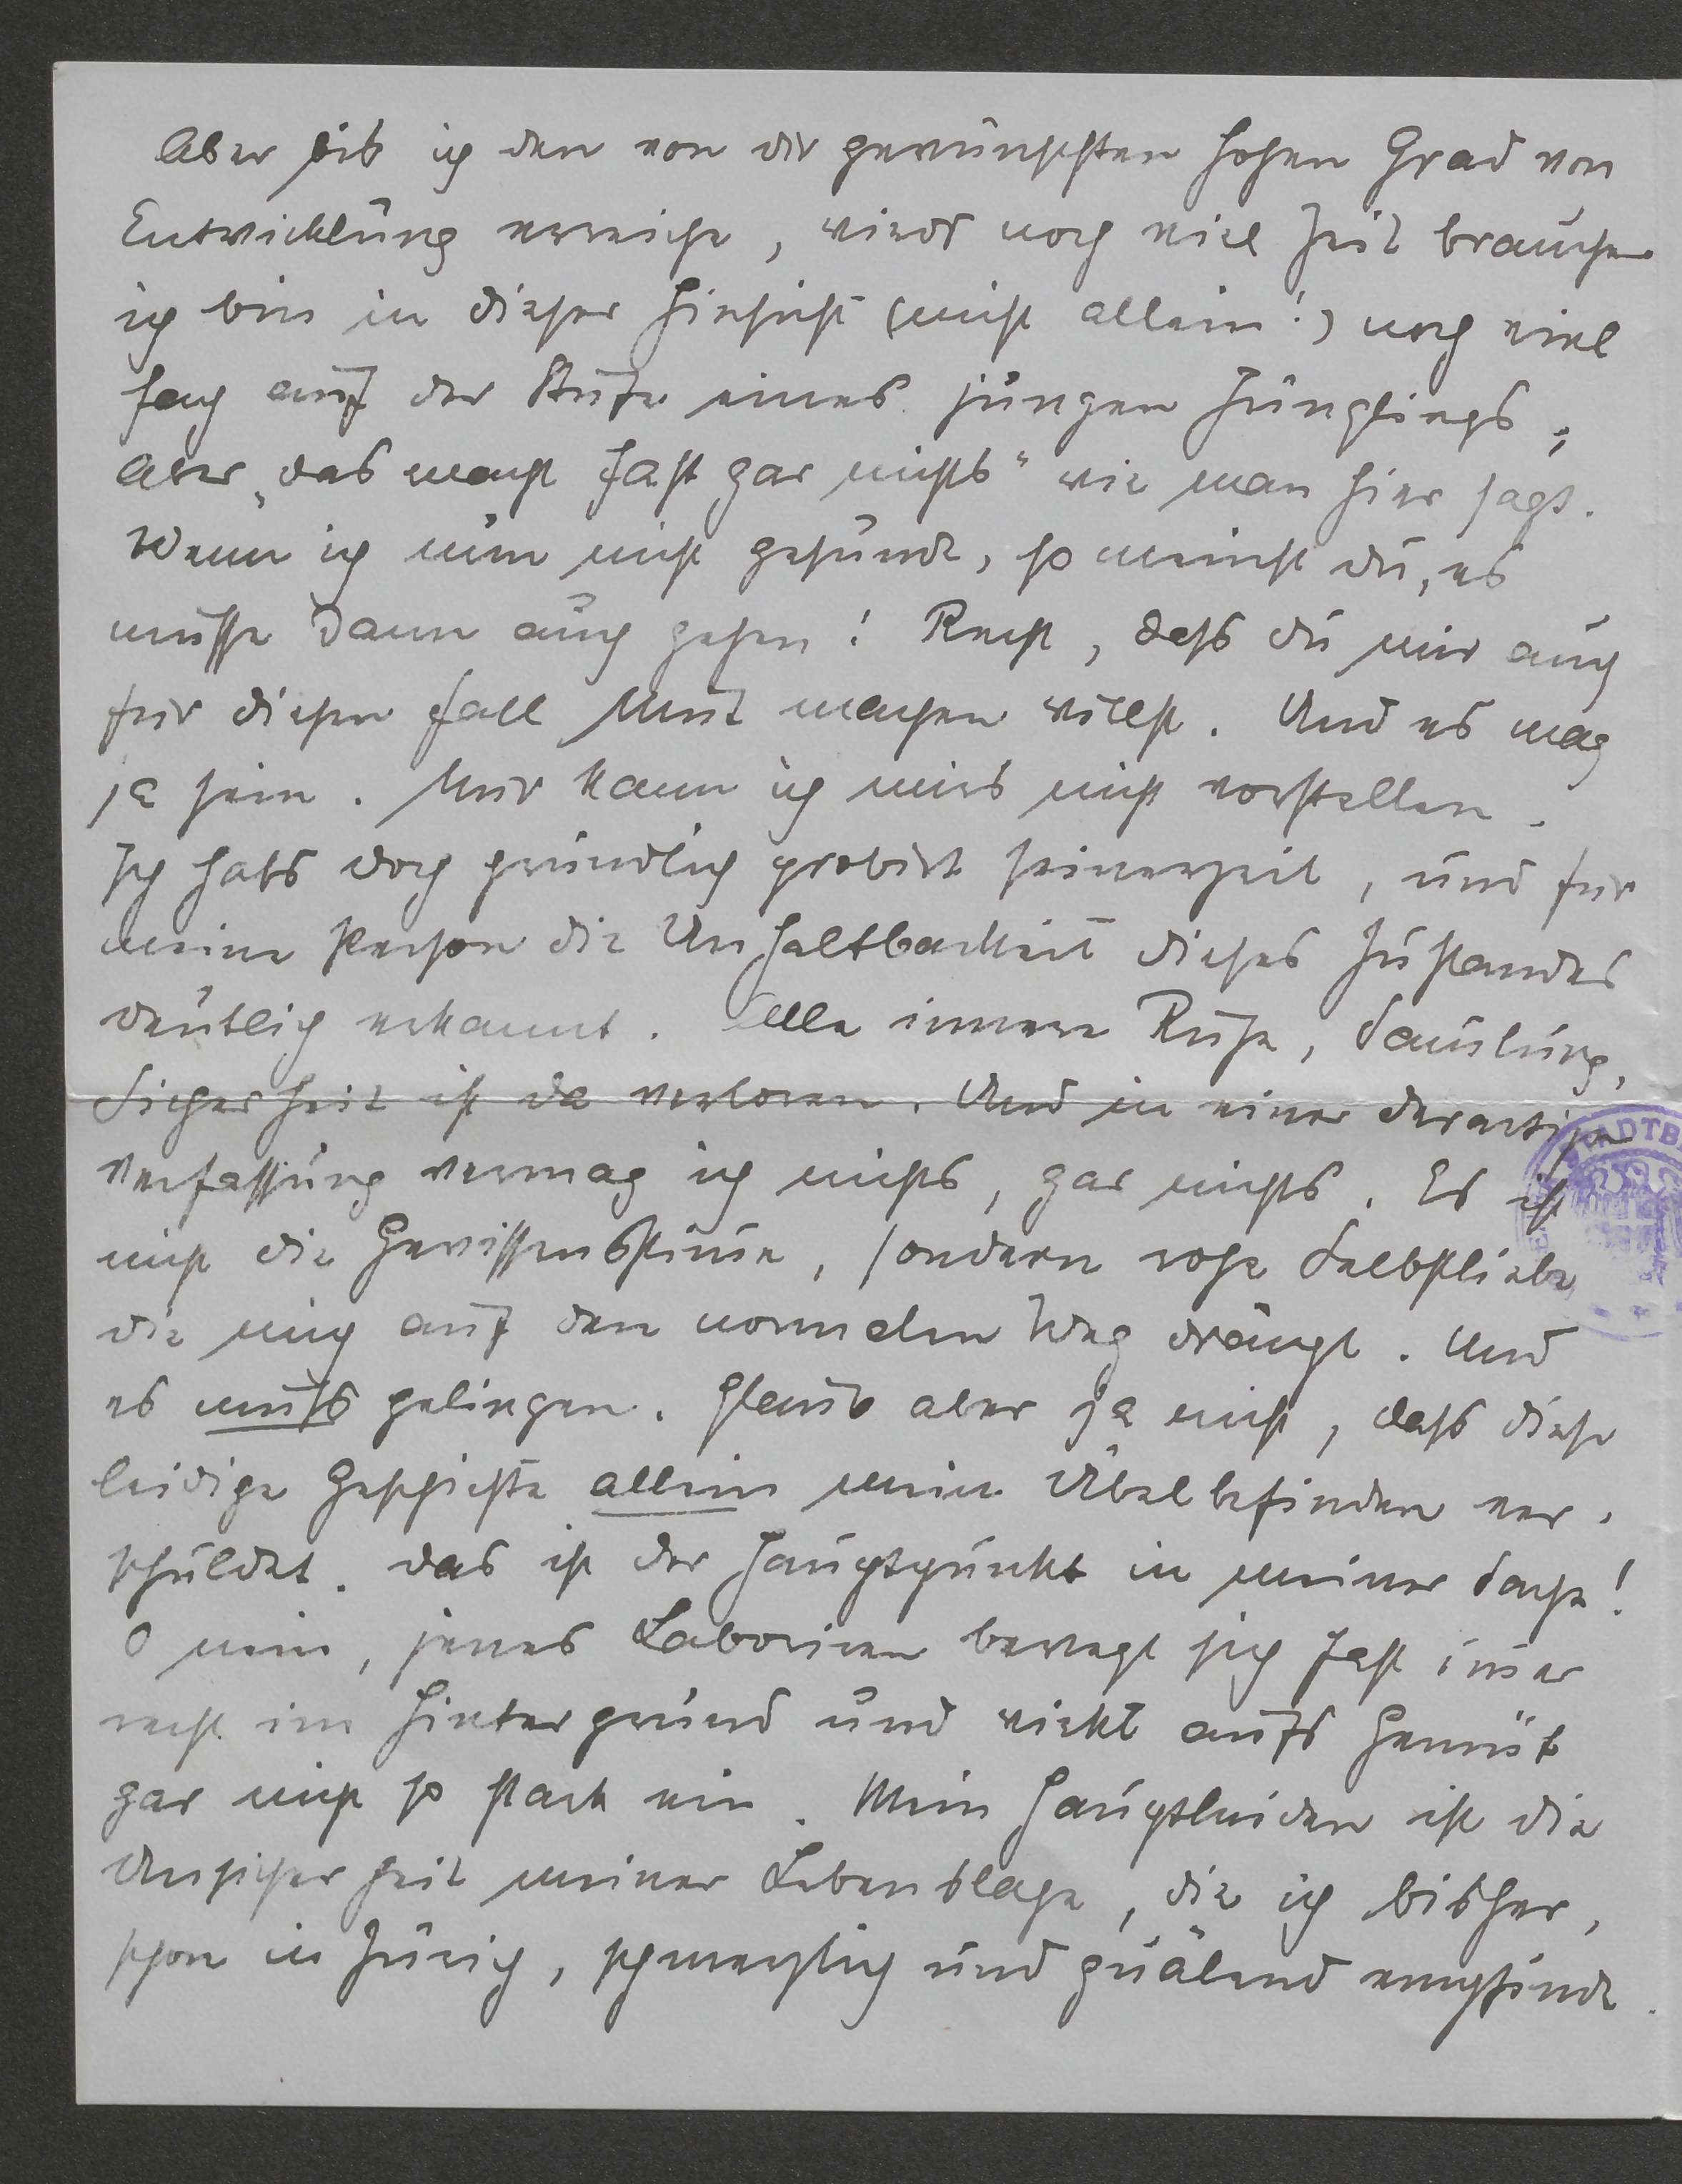 Aber bis ich den von dir gewünschten hohen Grad von
Entwicklung erreiche, wirds noch viel Zeit brauchen
ich bin in dieser Hinsicht (nicht allein!) noch viel
fach auf der Stufe eines jungen Jünglings,
aber „das macht fast gar nichts“ wie man hier sagt.
Wenn ich nun nicht gesunde, so meinst du, es
müsse dann auch gehen! Recht, dass du mir auch
für diesen Fall Mut machen willst. Und es mag
ja sein. Nur kann ich mirs nicht vorstellen.
Ich habs doch gründlich probirt seinerzeit, und für
meine Person die Unhaltbarkeit dieses Zustandes
deutlich erkannt. Alle innere Ruhe, Samlung,
Sicherheit ist da verloren. Und in einer derartigen
Verfassung vermag ich nichts, gar nichts. Es ist
nicht die Gewissensstime, sondern rohe Selbstliebe
die mich auf den normalen Weg drängt. Und
es muss gelingen. Glaub aber ja nicht, dass diese
leidige Geschichte allein mein Übelbefinden ver-
schuldet. das ist der Hauptpunkt in meiner Sache!
O nein, jenes Laboriren bewegt sich fast imer
recht im Hintergrund und wirkt aufs Gemüt
gar nicht so stark ein. Mein Hauptleiden ist die
Unsicherheit meiner Lebenslage, die ich bisher,
schon in Zürich, schmerzlich und quälend empfinde.